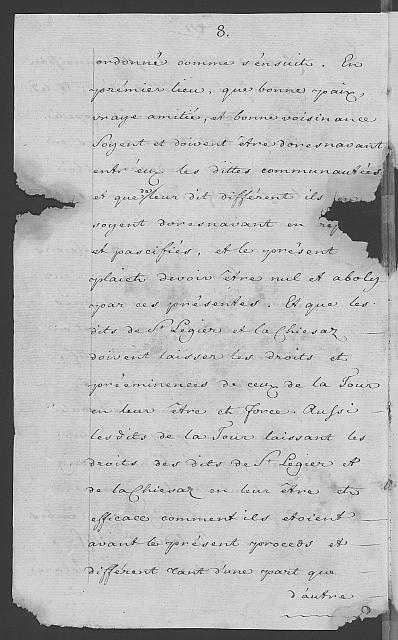 8.
ordonné comme s'ensuite. En
prémier lieu, que bonne paix,
vraye amitié, et bonne voisinance
soyent et doivent être doresnavant
entr'eux les dittes communautées
et que de leur dit différent ils
soyent doresnavant en
et pascifiés, et le présent
plaict devoir être nul et aboly
par ces présentes. Et que les
dits de St Légier et la Chiesaz
doivent laisser les droits et
prééminences de ceux de la Tour
en leur être et force. Aussi
lesdits de la Tour laissant les
droits des dits de St Légier et
de la Chiesaz en leur être et
efficace comment ils étoient
avant le présent proceds et
différent tant d'une part que
d'autre